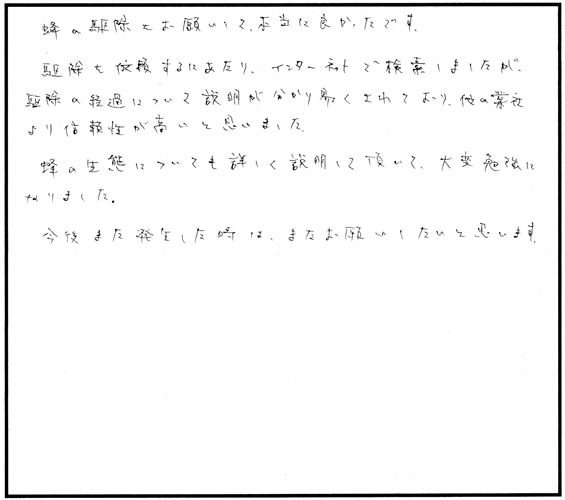 蜂の駆除をお願いして、本当に良かったです。
駆除を依頼するにあたり、インターネットで検索しましたが、
駆除の経過について説明が分かり易くされており、他の業社
より信頼性が高いと思いました。
蜂の生態についても詳しく説明して頂いて、大変勉強に
なりました。
今後また発生した時は、またお願いしたいと思います。